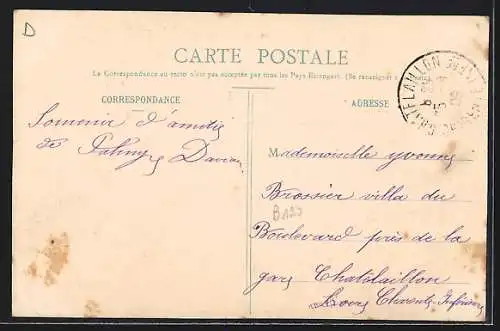 D
CARTE POSTALE
La Correspondance au recto n'est pas acceptée par tous les Pays Etrangers. (Se renseigner
CORRESPONDANCE
ADRESSE
CHATELAILLON
Souvenir d'amitié
de Davian
Mademoiselle yvonne
Brossier villa du
B123
Boulevard près de la
gare Chatelaillon
Charente-Inférieure